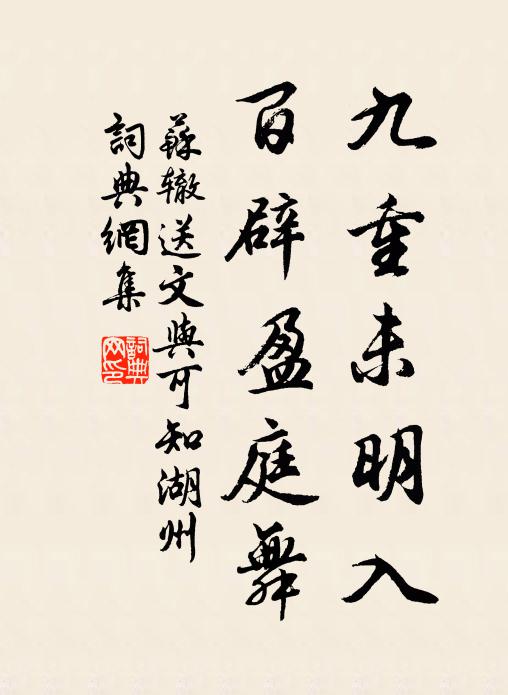 九重未明入
百辟盈庭舞
蘇辙送文與可知湖州
詞典網集
詞典網印